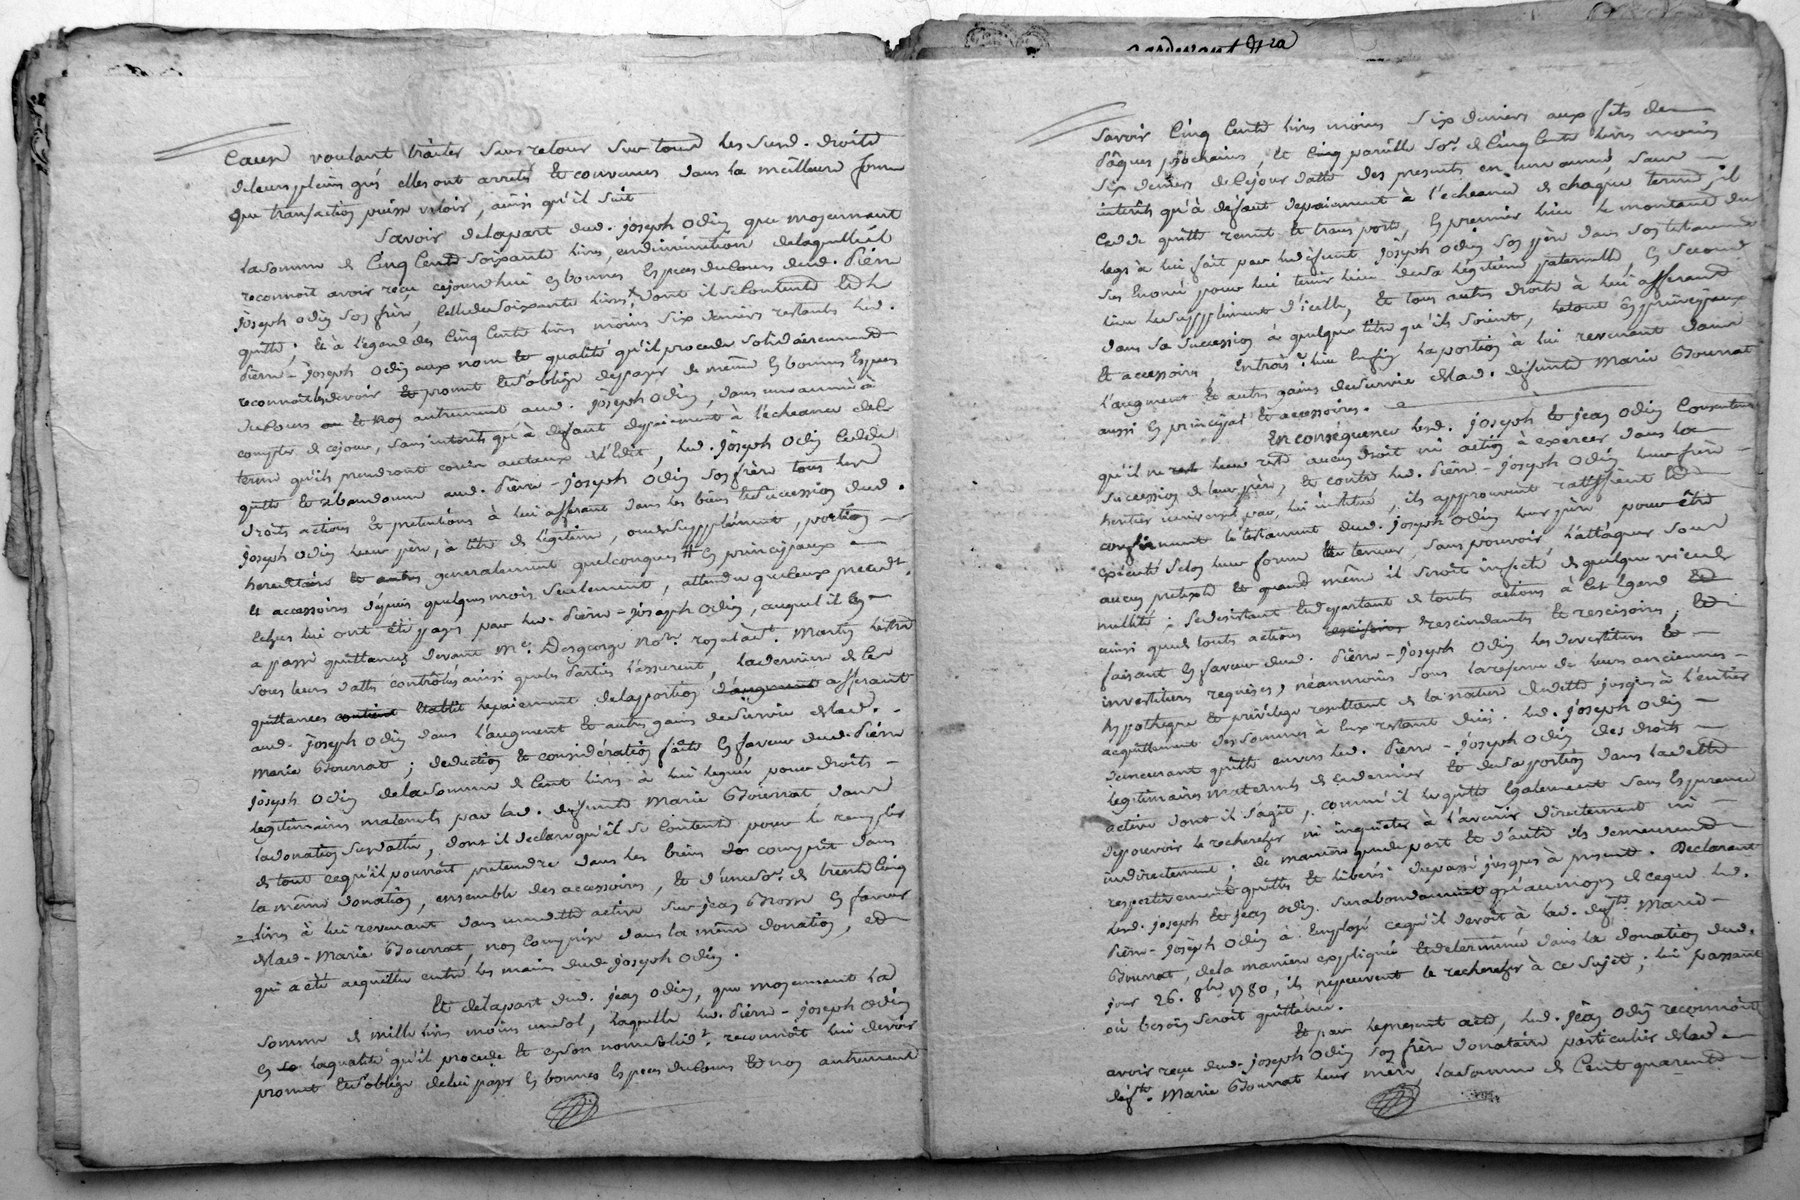 pardevant
Caux voulant traiter sans retour sur tous les susd. droits
de leurs pleins grés elles ont arrêté et convenus dans la meilleure forme
que transaction puisse valoir, ainsi qu'il suit
Savoir de la part dud. joseph Odin que moyennant
la somme de Cinq Cents soixante livres, en diminution de laquelle il
reconnoit avoir reçu cejourdhui en bonnes Especes du Cours dud. Pierre
joseph Odin son frère, celle de soixante livres dont il se Contente et le
quitte; Et à l'égard des Cinq Cents livres moins six deniers restants led.
Pierre-joseph Odin aux nom et qualité qu'il procede solidairement
reconnoit les devoir et promet et s'oblige de payer de même en bonnes Especes
du Cours et non autrement aud. joseph Odin, dans une année à
compter de cejour, sans interêts qu'à defaut de payement à l'écheance dele
terme qu'ils prendront cours au taux de l'Edit, led. joseph Odin cedde
quitte et abandonne aud. Pierre-joseph Odin son frère tous les
droits actions et pretentions à lui afferant dans les biens et succession dud.
joseph Odin leur père, à titre de légitime, ou de supplément, portion
hereditaire et generalement quelconques en principaux
et accessoires depuis quelques mois seulement, attendu que ceux preced.
echus lui ont été payés par led. Pierre-joseph Odin, auquel il en
a passé quittances devant Me. Desgeorge Nore. royal à St. Martin
sous leurs dattes contrôlés ainsi que les Parties l'assurent, la derniere de ces
quittances Etablit le paiement de la portion afferant
aud. joseph Odin dans l'augment et autres gains de survie de lad.
Marie Bournat; deduction et considération faite en faveur dud. Pierre
joseph Odin de la somme de Cent livres à lui leguée pour droits
legitimaires maternels par lad. defunte Marie Bournat dans
la donation susdattée, dont il declare qu'il se Contente pour le remplir
de tout ce qu'il pourroit pretendre dans les biens compris dans
la même donation, ensemble des accessoires, et d'une some. de trente Cinq
livres à lui revenant dans une dette active sur jean Brosse en faveur
de lad. Marie Bournat, non comprise dans la même donation, et
qui a été acquittée entre les mains dud. joseph Odin.
Et de la part dud. jean Odin, que moyennant la
somme de mille livres moins un sol, laquelle led. Pierre-joseph Odin
en la qualité qu'il procede et en son nom solid.t reconnoit lui devoir
promet et s'oblige de lui payer en bonnes Especes du Cours et non autrement
Savoir Cinq Cents livres moins six deniers aux fêtes de
Pâques prochaines, et pareille so.e de Cinq Cents livres moins
six deniers de cejour datte des presents en une année, sans
interêts qu'à defaut de paiement à l'écheance de chaque terme; il
cedde quitte remet et transporte, En premier lieu le montant du
legs à lui fait par led. defunt joseph Odin son père dans son testament
sus Enoncé pour lui tenir lieu de sa légitime paternelle, En second
lieu le supplément d'icelle, et tous autres droits à lui afferant
dans sa succession à quelque titre qu'ils soient, le tout en principaux
et accessoires, En trois.e lieu Enfin la portion à lui revenant dans
l'augment et autres gains de survie de lad. defunte Marie Bournat
aussi En principal et accessoires.
En conséquence lesd. joseph et jean Odin Consentent
qu'il ne leur reste aucun droit ni action à exercer dans la
succession de leur père, et contre led. Pierre-joseph Odin leur frère
heritier universel par lui institué, ils approuvent ratiffient et
confirment le testament dud. joseph Odin leur père pour être
exécuté selon leur forme et teneur, sans pouvoir l'attaquer sous
aucun pretexte et quand même il seroit infecté de quelque vice de
nullité; se desistant et departant de toutes actions à cet égard
ainsi que de toutes actions rescindantes et rescisoires, et
faisant en faveur dud. Pierre-joseph Odin les devestitures et
investitures requises, néanmoins sous la reserve de leurs anciennes
hypotheque et privilege resultant de la nature de dette jusques à l'entier
acquittement des sommes à Eux restant dües. led. joseph Odin
demeurant quitte envers led. Pierre-joseph Odin des droits
legitimaires maternels de ce dernier et de sa portion dans la dette
active dont il s'agit, comme il le quitte également sans Esperance
de pouvoir le rechercher ni inquieter à l'avenir directement ni
indirectement; de maniere que de part et d'autre ils demeurent
respectivement quittes et liberés depassé jusques à present. Declarant
lesd. joseph et jean Odin surabondament qu'au moyen de ceque led.
Pierre-joseph Odin à Employé ce qu'il devoit à lad. deffte. Marie
Bournat, de la maniere expliquée et determinée dans la donation dud.
jour 26. 8bre 1780, ils ne peuvent le rechercher à ce sujet; lui passant
où besoin seroit quittance.
Et par le present acte, led. jean Odin reconnoit
avoir reçu dud. joseph Odin son frère donataire particulier de lad.
deffte. Marie Bournat leur mère la somme de Cent quarante